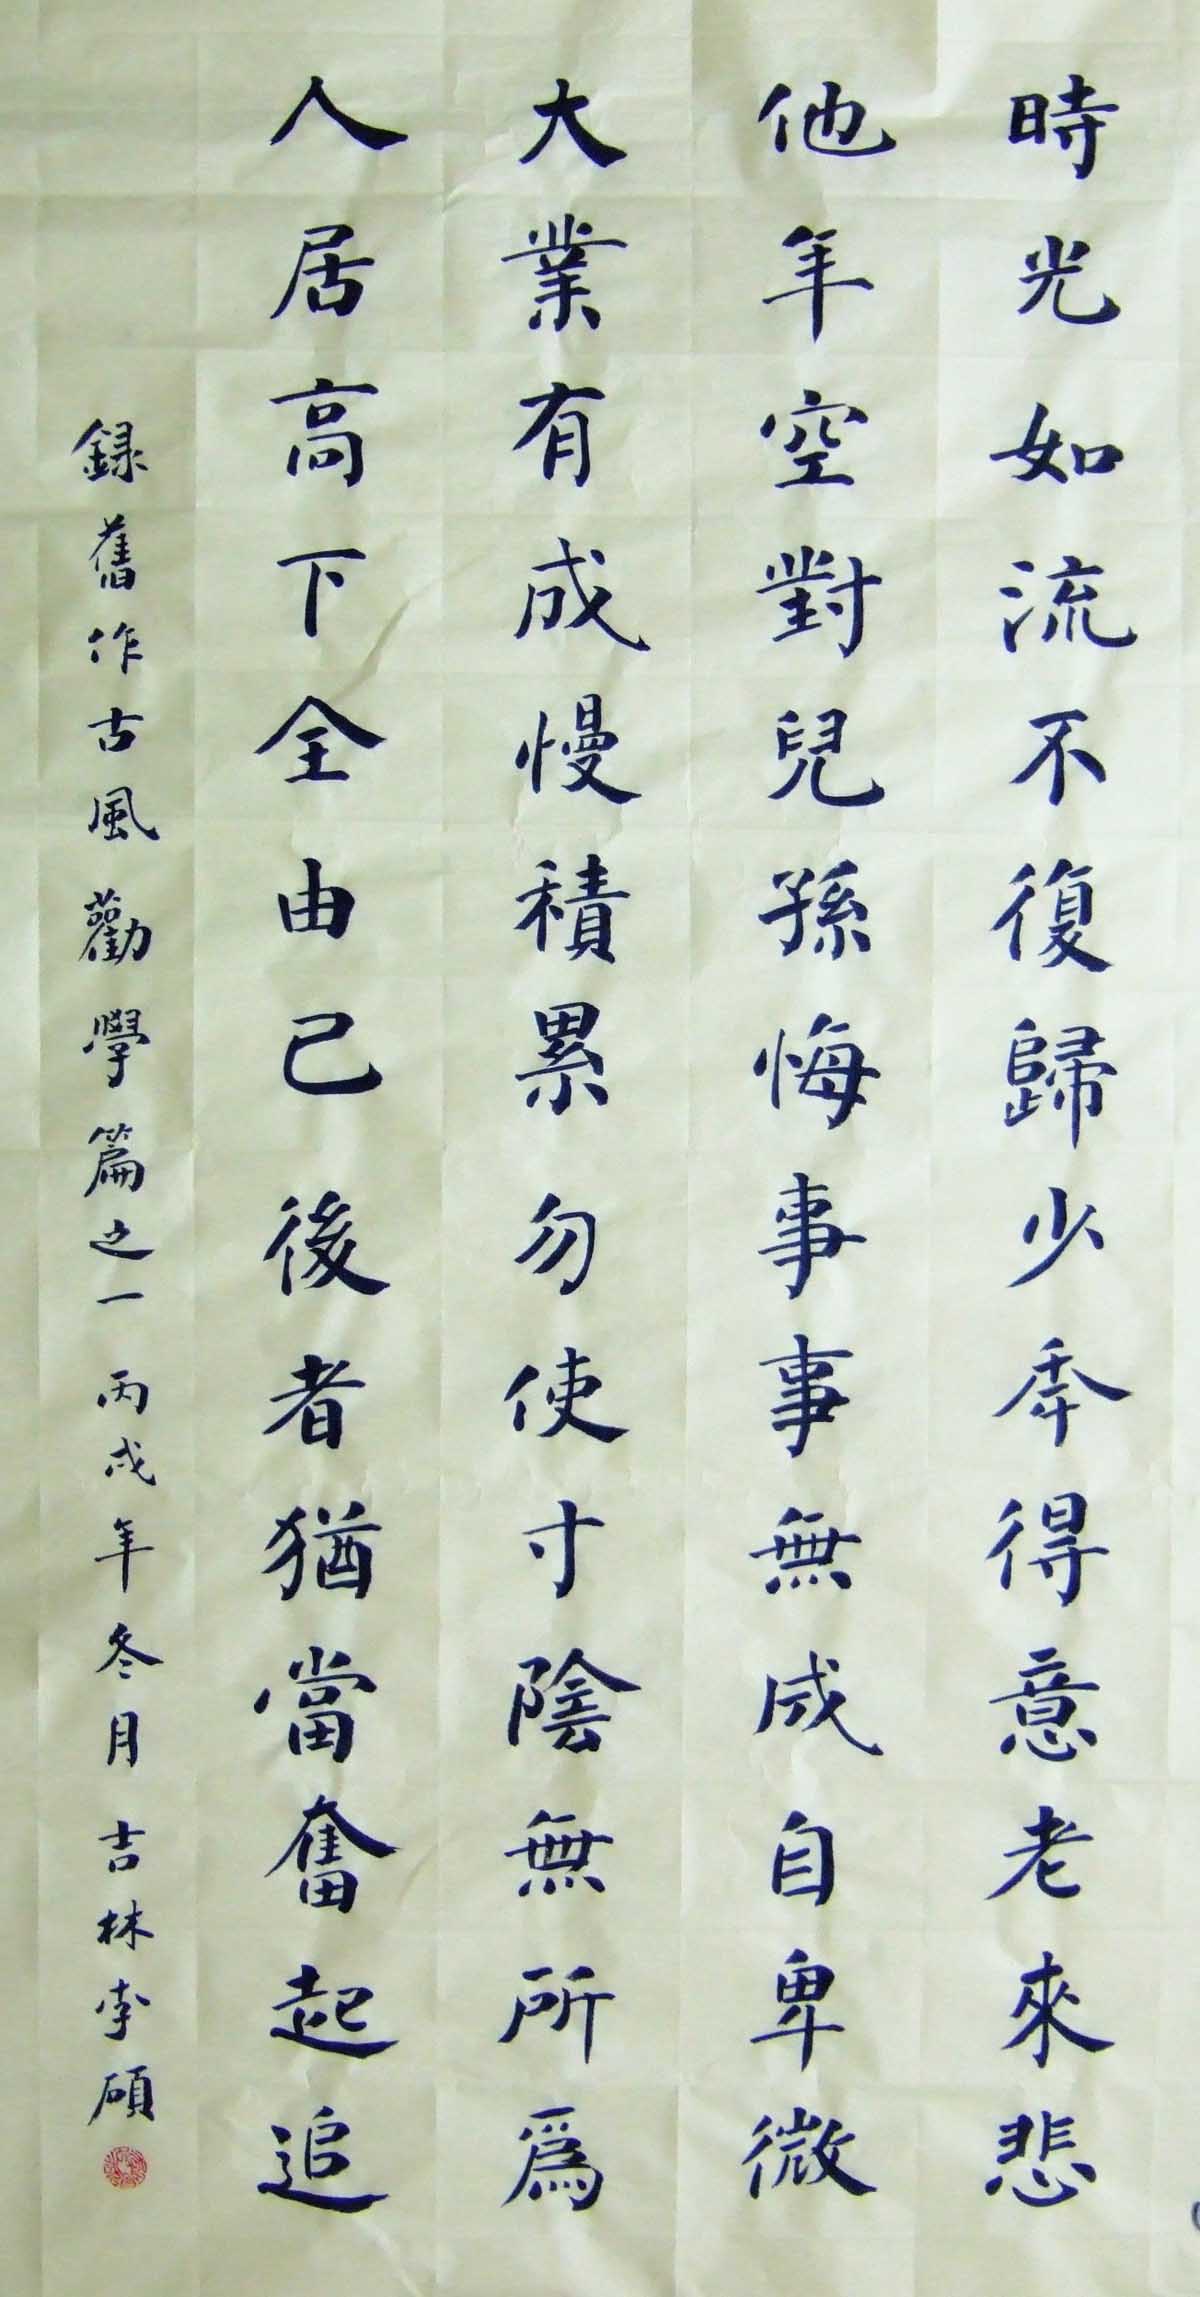 時光如流不復歸少年得意老來悲
他年空對兒孫悔事事無成自卑微
大業有成慢積累勿使寸陰無所爲
人居高下全由己後者猶當奮起追
録舊作古風勸學篇之一丙戌年冬月吉林李碩